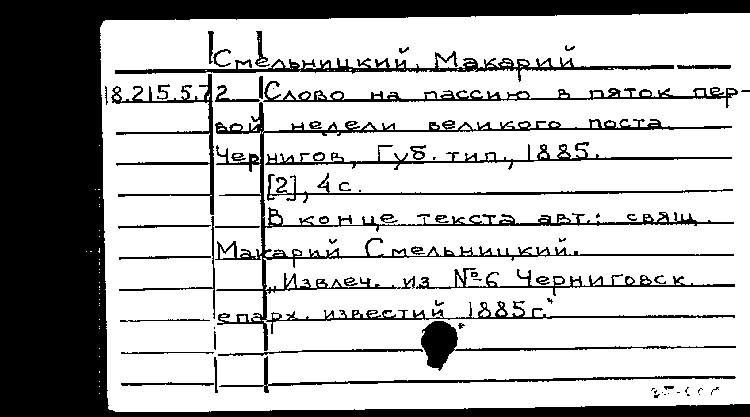 Смельницкий, Макарий
18.215.5.72 Слово на пассию в пяток пер-
вой недели великого поста.
Чернигов, Губ. тип., 1885.
[2], 4 с.
В конце текста авт.: свящ.
Макарий Смельницкий.
„Извлеч. из № 6 Черниговск.
епарх. известий 1885г."